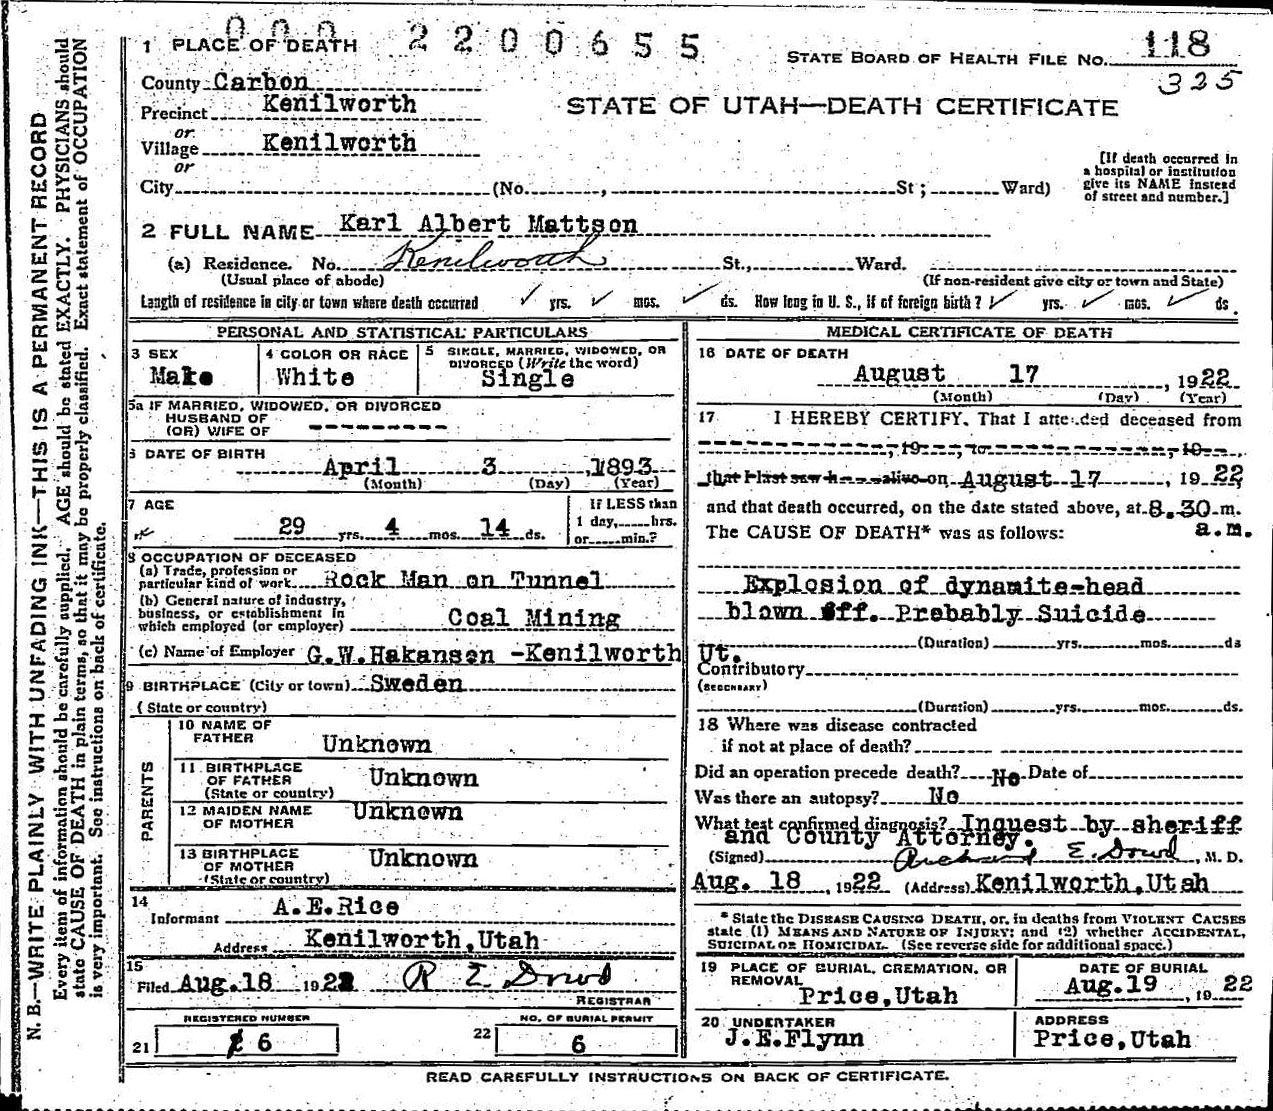 0 0 0 2 2 0 0 6 5 5
1 PLACE OF DEATH
STATE BOARD OF HEALTH FILE NO. 118
325
County Carbon
Precinct Kenilworth
STATE OF UTAH—DEATH CERTIFICATE
or
Village Kenilworth
or
City (No. , St ; Ward)
[If death occurred in
a hospital or institution
give its NAME instead
of street and number.]
2 FULL NAME Karl Albert Mattson
(a) Residence. No. Kenilworth St., Ward.
(Usual place of abode) (If non-resident give city or town and State)
Length of residence in city or town where death occurred ✓ yrs. ✓ mos. ✓ ds. How long in U. S., if of foreign birth? ✓ yrs. ✓ mos. ✓ ds.
PERSONAL AND STATISTICAL PARTICULARS
3 SEX
Male
4 COLOR OR RACE
White
5 SINGLE, MARRIED, WIDOWED, OR
DIVORCED (Write the word)
Single
5a IF MARRIED, WIDOWED, OR DIVORCED
HUSBAND OF
(OR) WIFE OF ---------
6 DATE OF BIRTH
April 3 ,1893
(Month) (Day) (Year)
7 AGE
29 yrs. 4 mos. 14 ds.
If LESS than
1 day, hrs.
or min.?
8 OCCUPATION OF DECEASED
(a) Trade, profession or
particular kind of work Rock Man on Tunnel
(b) General nature of industry,
business, or establishment in
which employed (or employer) Coal Mining
(c) Name of Employer G.W.Hakansen -Kenilworth Ut.
9 BIRTHPLACE (City or town) Sweden
(State or country)
PARENTS
10 NAME OF
FATHER Unknown
11 BIRTHPLACE
OF FATHER Unknown
(State or country)
12 MAIDEN NAME
OF MOTHER Unknown
13 BIRTHPLACE
OF MOTHER Unknown
(State or country)
14
Informant A.E.Rice
Address Kenilworth,Utah
15
Filed Aug.18 1922 R E Dowd
REGISTRAR
REGISTERED NUMBER
21 6
NO. OF BURIAL PERMIT
22 6
MEDICAL CERTIFICATE OF DEATH
16 DATE OF DEATH
August 17 , 1922
(Month) (Day) (Year)
17 I HEREBY CERTIFY, That I attended deceased from
, 19 , to , 19
that I last saw h alive on August 17 , 19 22,
and that death occurred, on the date stated above, at 8.30 m.
The CAUSE OF DEATH* was as follows: a.m.
Explosion of dynamite-head
blown off. Probably Suicide
(Duration) yrs. mos. ds
Contributory
(SECONDARY)
(Duration) yrs. mos. ds.
18 Where was disease contracted
if not at place of death?
Did an operation precede death? No Date of
Was there an autopsy? No
What test confirmed diagnosis? Inquest by sheriff
and County Attorney.
(Signed) E. Dowd , M. D.
Aug. 18 , 1922 (Address) Kenilworth,Utah
* State the DISEASE CAUSING DEATH, or, in deaths from VIOLENT CAUSES
state (1) MEANS AND NATURE OF INJURY; and (2) whether ACCIDENTAL,
SUICIDAL OR HOMICIDAL. (See reverse side for additional space.)
19 PLACE OF BURIAL, CREMATION, OR
REMOVAL Price,Utah
DATE OF BURIAL
Aug.19 , 19 22
20 UNDERTAKER
J.E.Flynn
ADDRESS
Price,Utah
READ CAREFULLY INSTRUCTIONS ON BACK OF CERTIFICATE.
N. B.—WRITE PLAINLY WITH UNFADING INK—THIS IS A PERMANENT RECORD
Every item of information should be carefully supplied. AGE should be stated EXACTLY. PHYSICIANS should
state CAUSE OF DEATH in plain terms, so that it may be properly classified. Exact statement of OCCUPATION
is very important. See instructions on back of certificate.